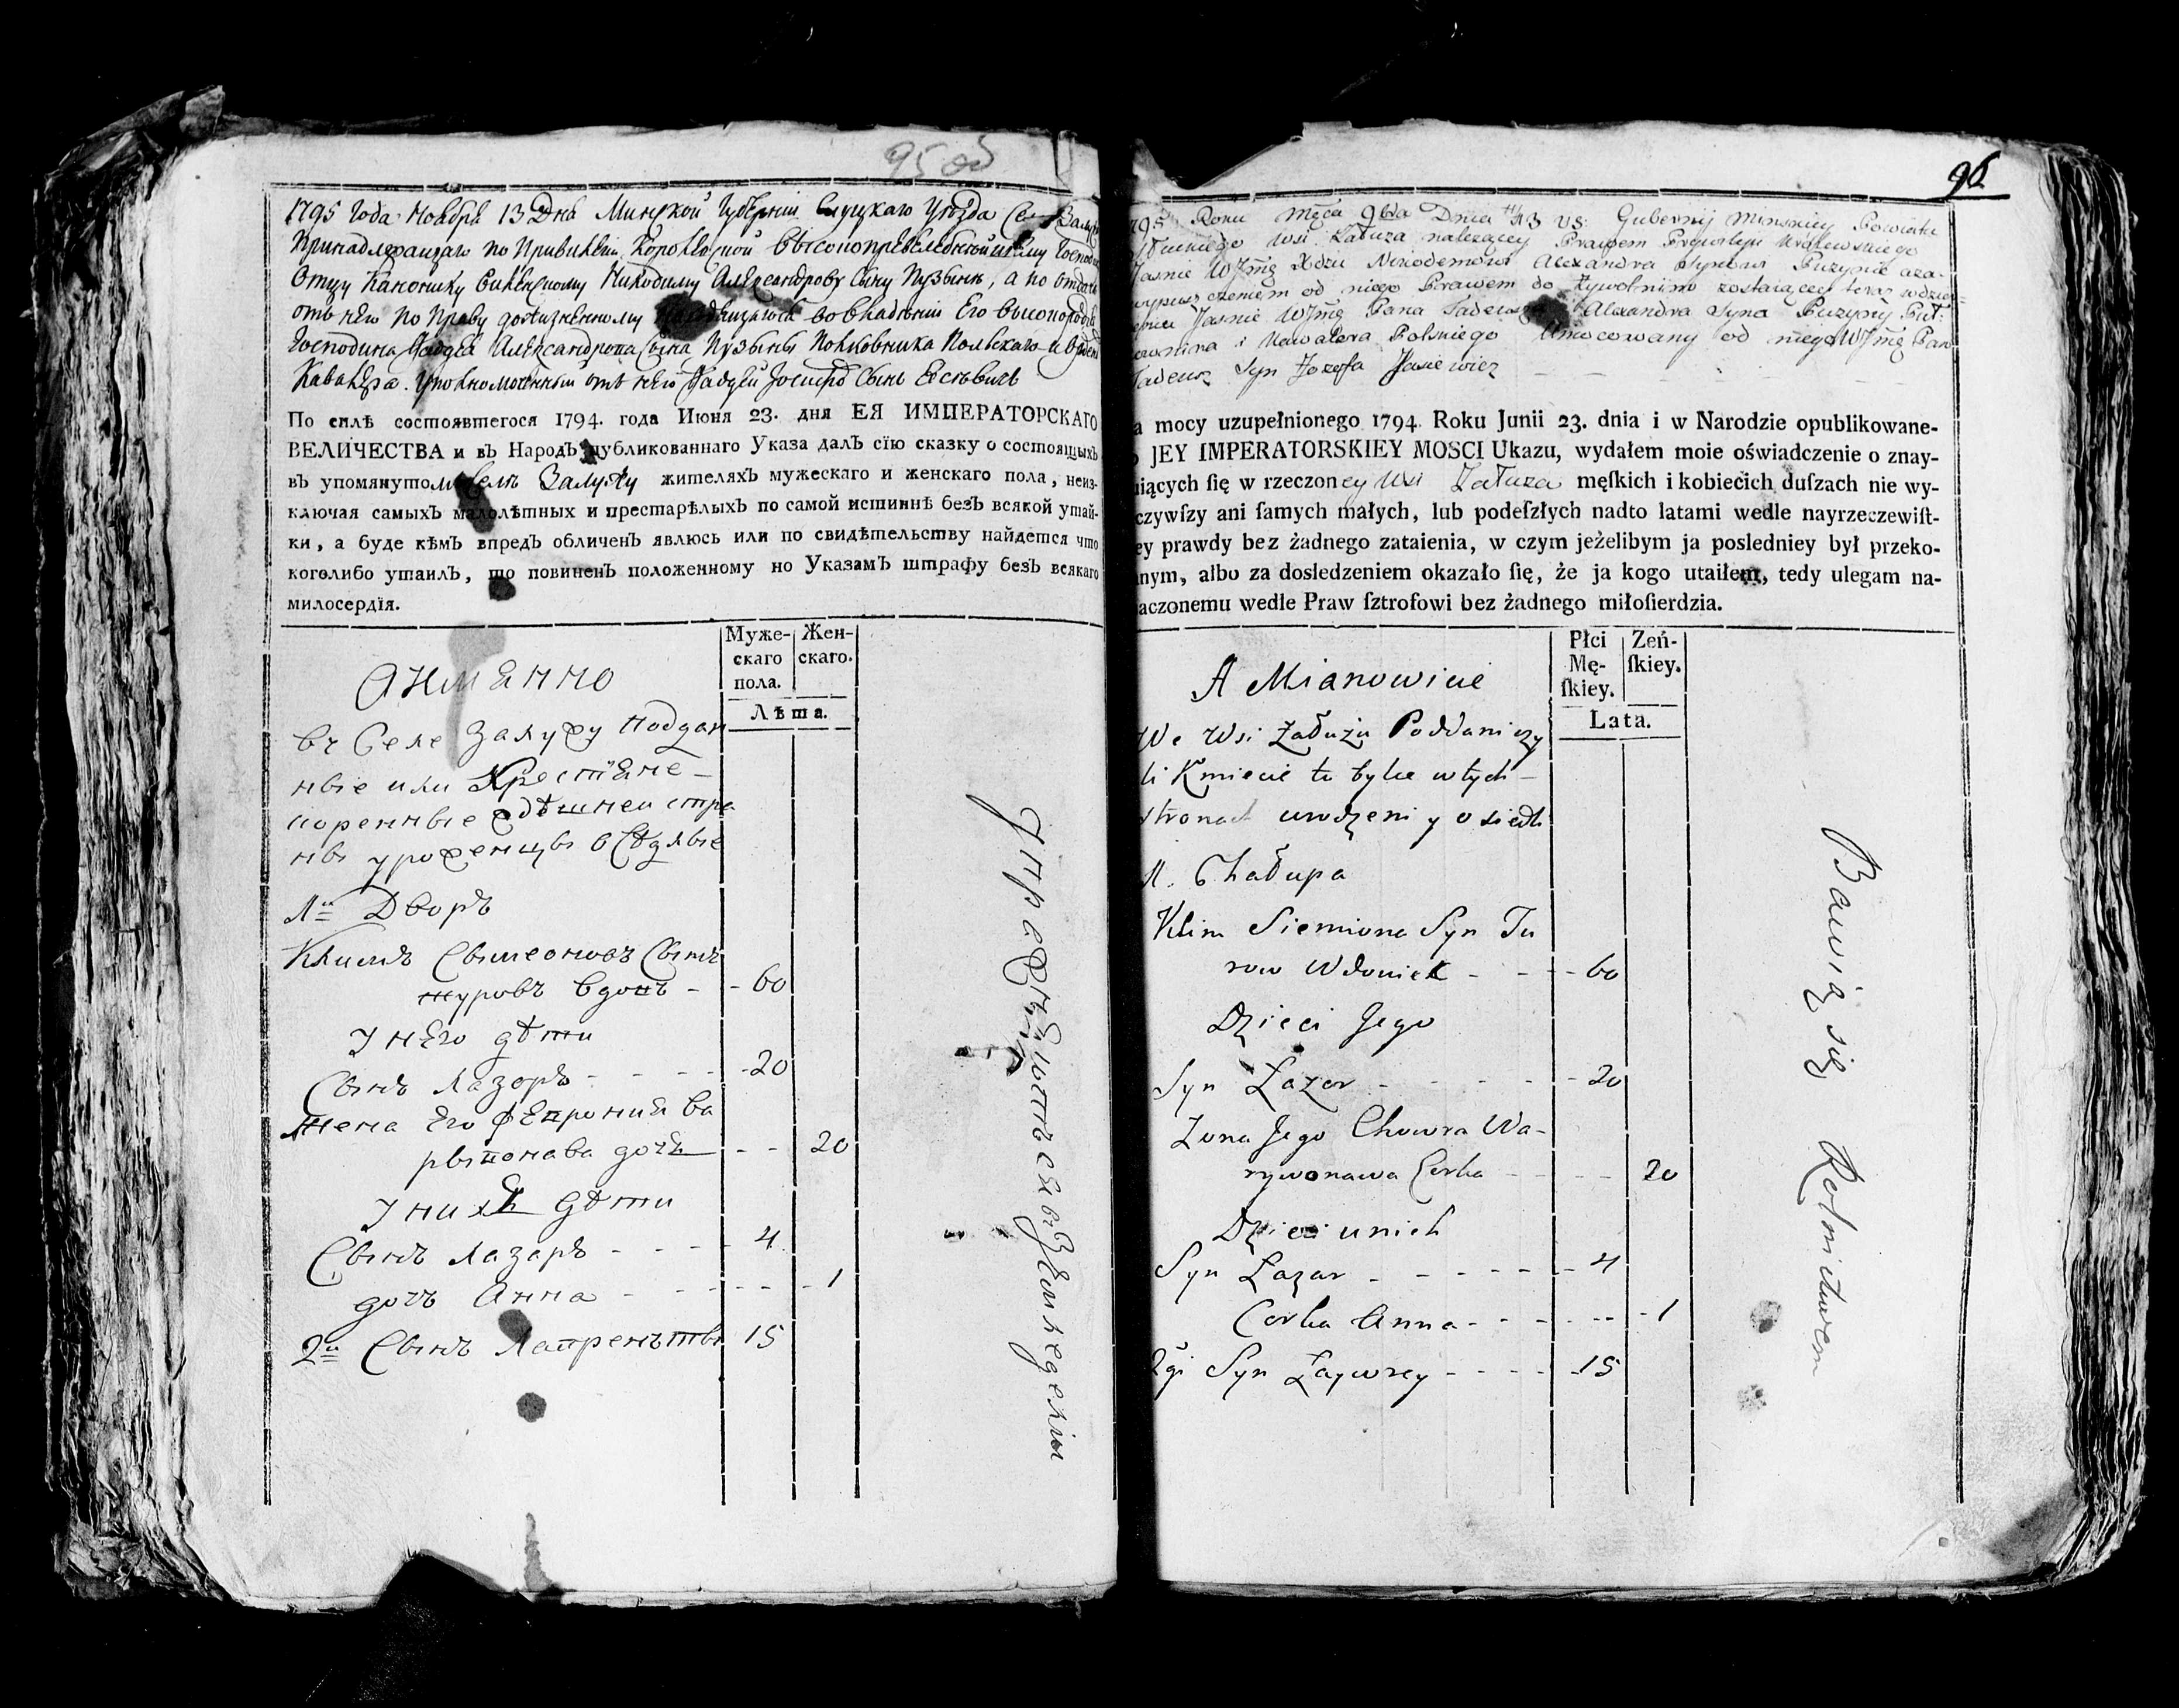 95 об
1795 Года Ноября 13 Дня Минской Губернии Слуцкаго Уѣзда Село Залуж
Принадлежащаго по Привилегии Королевской Высокопревелебнийшему Господину
Отцу Каноннку Виленскому Никодиму Александрову Сыну Пузыне, а по отдачи
отъ него по Праву дожизненному во владѣнии Его высокородія
Господина Фадѣя Александрова Сына Пузыны Полковника Польскаго и Орденовъ
Кавалера. Уполномоченный отъ него Фадѣй Іосифа Сынъ
По силѣ состоявшегося 1794. года Июня 23. дня ЕЯ ИМПЕРАТОРСКАГО
ВЕЛИЧЕСТВА и въ Народъ публикованнаго Указа далъ сїю сказку о состоящыхъ
въ упомянутомъ Селе Залужу жителяхъ мужескаго и женскаго пола, неиз-
ключая самыхъ малолѣтных и престарѣлыхъ по самой истиннѣ безъ всякой утай-
ки, а буде кѣмъ впредъ обличенъ явлюсь или по свидѣтельству найдется что
коголибо утаилъ, то повиненъ положенному по Указамъ штрафу безъ всякаго
милосердїя.
Муже- Жен-
скаго скаго.
пола.
Лѣта.
А имянно
въ Селе Залужу Поддан
ные или Крестяне
коренные здѣшней стра
ны уроженцы осѣдлые
1й Дворъ
Климъ Сымеоновъ Сынъ
туровъ вдовъ - 60
У него дѣти
Сынъ Лазоръ - - - 20
Жена Его Феврония Ва
рывонава дочь - - 20
У нихъ дѣти
Сынъ Лазаръ - - - 4
дочъ Анна - - - 1
2й Сынъ Лавренътый 15
Упражняются въ земледелии
96
1795 Roku Mśca 9bra Dnia 13 VS: Gubernij Minskiey Powiatu
Słuckiego Wsi Załuża należącey Prawem Przywileju Krolewskiego
Jasnie WJmę Xdzu Nikodemowi Alexandra Synowi Puzynie a za-
wypuszczeniem od niego Prawem do żywotnim zostaiącey teraz w dzier-
żeniu Jasnie WJmę Pana Tadeusza Alexandra Syna Puzyny Puł:
kownika i Kawalera Polskiego Umocowany od niego WJmę Pan
Tadeusz Syn Jozefa Jasiewicz
a mocy uzupełnionego 1794. Roku Junii 23. dnia i w Narodzie opublikowane-
o JEY IMPERATORSKIEY MOSCI Ukazu, wydałem moie oświadczenie o znay-
uiących ſię w rzeczoney Wsi Załuża męſkich i kobiecich duſzach nie wy-
czywſzy ani ſamych małych, lub podeſzłych nadto latami wedle nayrzeczewiſt-
ey prawdy bez żadnego zataienia, w czym jeżelibym ja posledniey był przeko-
nym, albo za dosledzeniem okazało ſię, że ja kogo utaiłem, tedy ulegam na-
aczonemu wedle Praw ſztrofowi bez żadnego miłoſierdzia.
Płci Zeń-
Mę- ſkiey.
ſkiey.
Lata.
A Mianowicie
We Wsi Załużu Poddani czy
li Kmiecie tu tylke w tych
stronach urodzeni y osiedli
1. Chałupa
Klim Siemiona Syn Tu
row Wdowiek - - - 60
Dzieci Jego
Syn Łazor - - - - 20
Żona Jego Chowra Wa-
rywonawa Corka - - - 20
Dzieci u nich
Syn Łazar - - - - 4
Corka Anna - - - - 1
2gi Syn Ławrey - - - - 15
Bawią się Rolnictwem